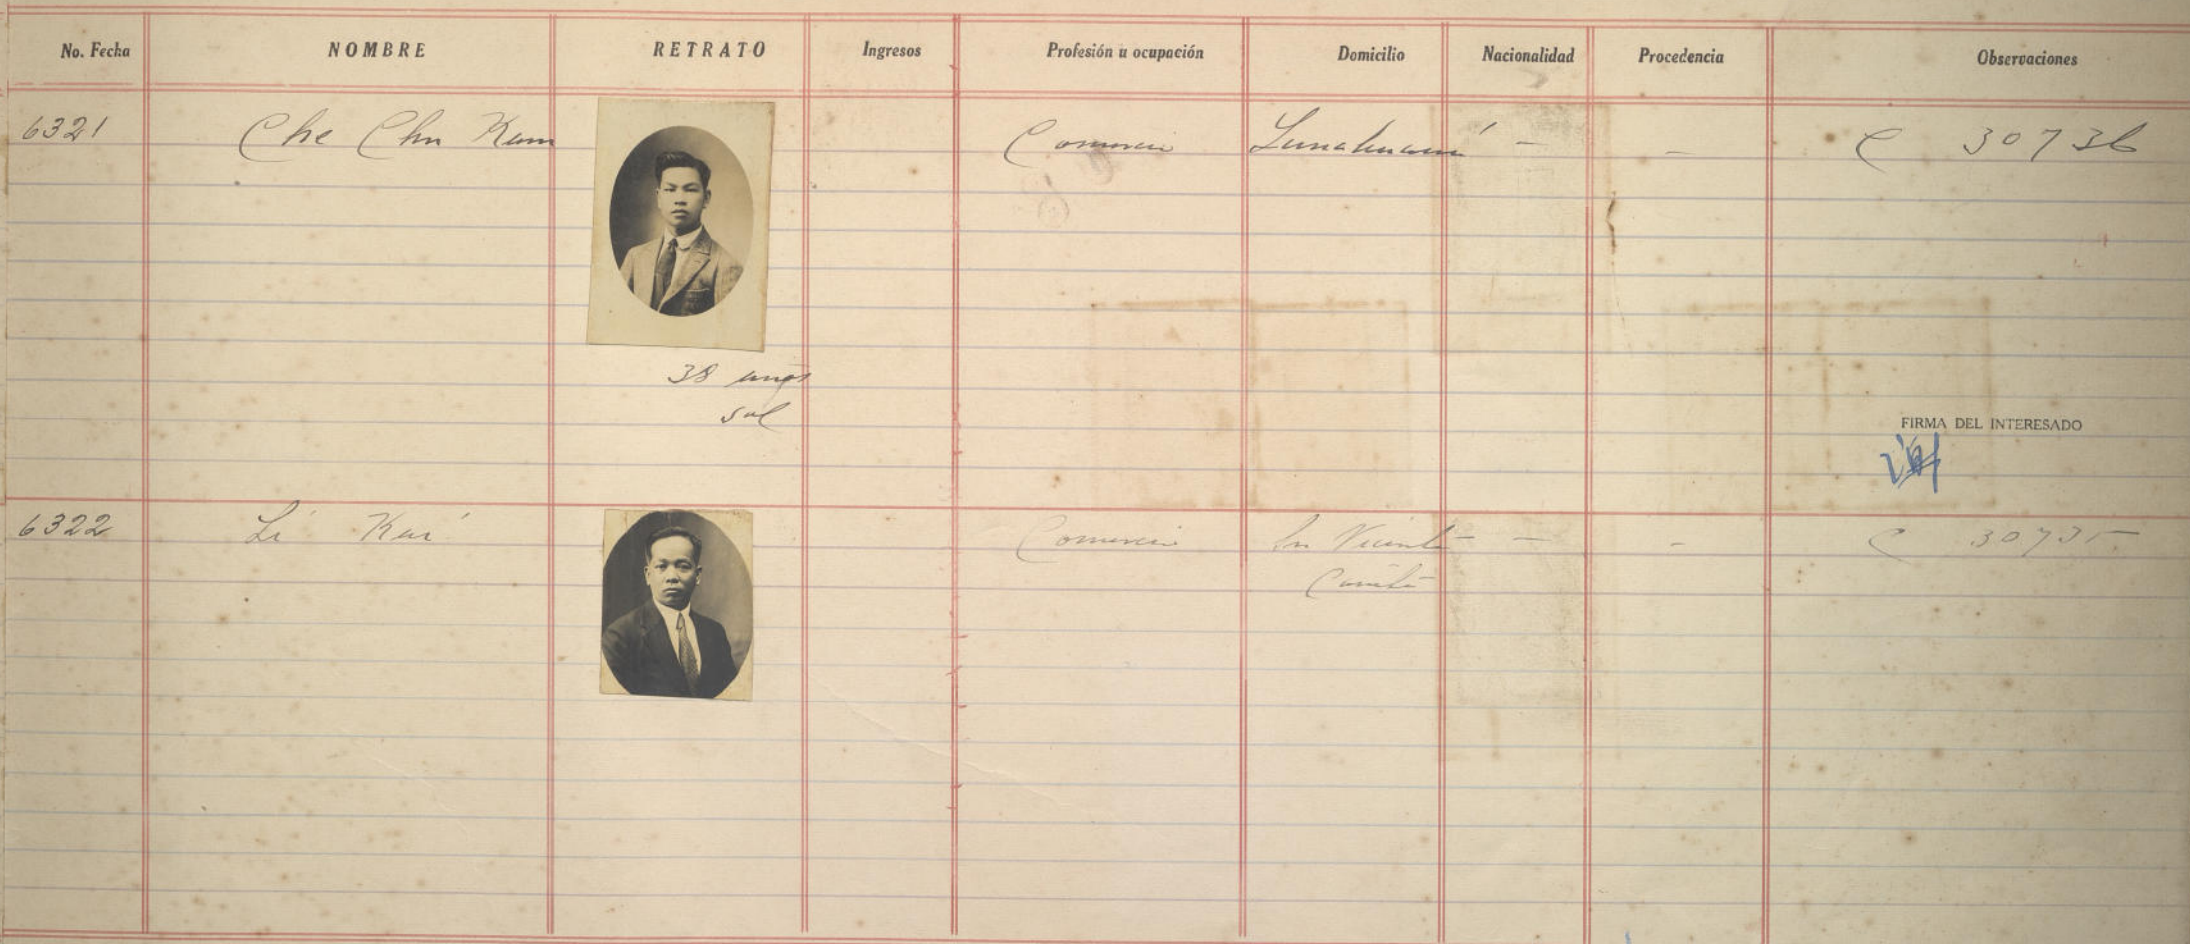 No. Fecha NOMBRE RETRATO Ingresos Profesión u ocupación Domicilio Nacionalidad Procedencia Observaciones
6321 Che Chu Kam Comercio Lunahuaná - - C 30736
38 años
sol
FIRMA DEL INTERESADO
6322 Li Kui Comercio Sn Vicente - - C 30735
Cañete